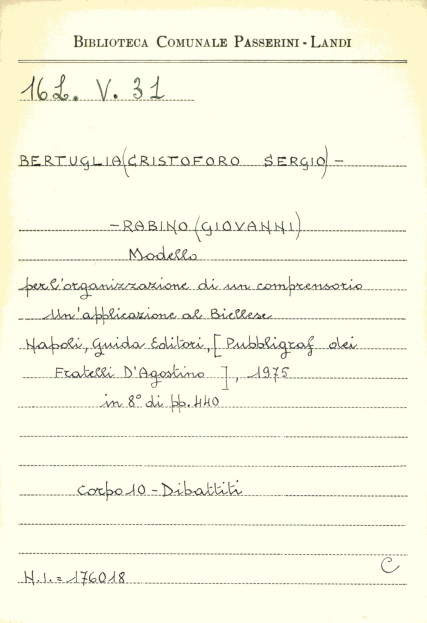 BIBLIOTECA COMUNALE PASSERINI - LANDI
16L. V. 31
BERTUGLIA (CRISTOFORO SERGIO) -
- RABINO (GIOVANNI)
Modello
per l'organizzazione di un comprensorio
Un'applicazione al Biellese
Napoli, Guida Editori, [Pubbligraf dei
Fratelli D'Agostino ], 1975
in 8° di pp. 440
Corpo 10 - Dibattiti
C
N.I. = 176018